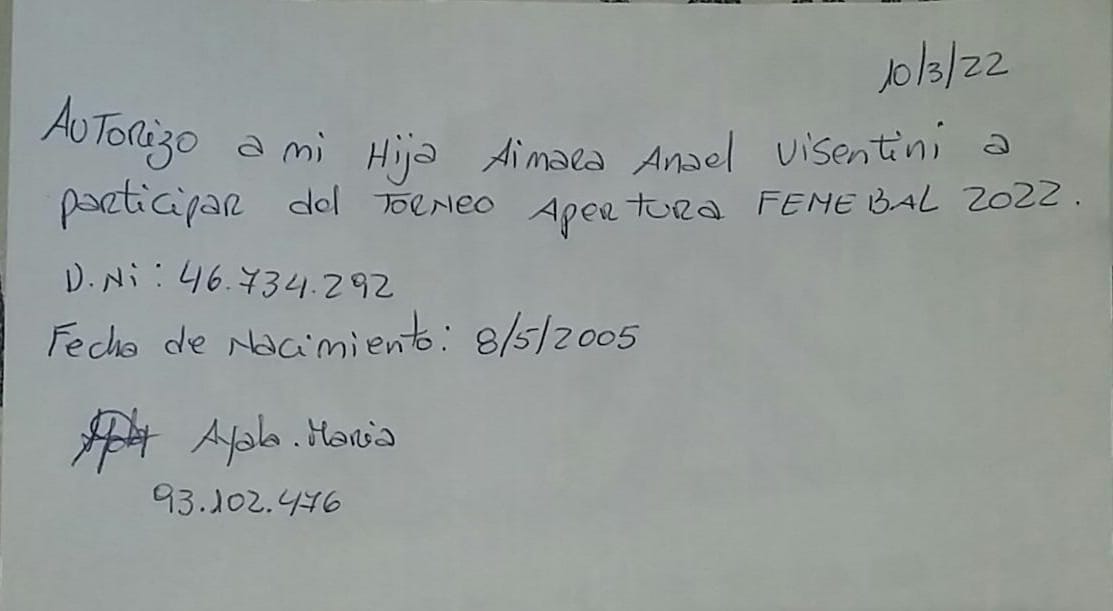 10/3/22
AUTORizo a mi Hija Aimara Anael Visentini a
participar del TORNEO APERTURA FEMEBAL 2022.
D.Ni: 46.734.292
Fecha de Nacimiento: 8/5/2005
Ayala. Maria
93.102.476